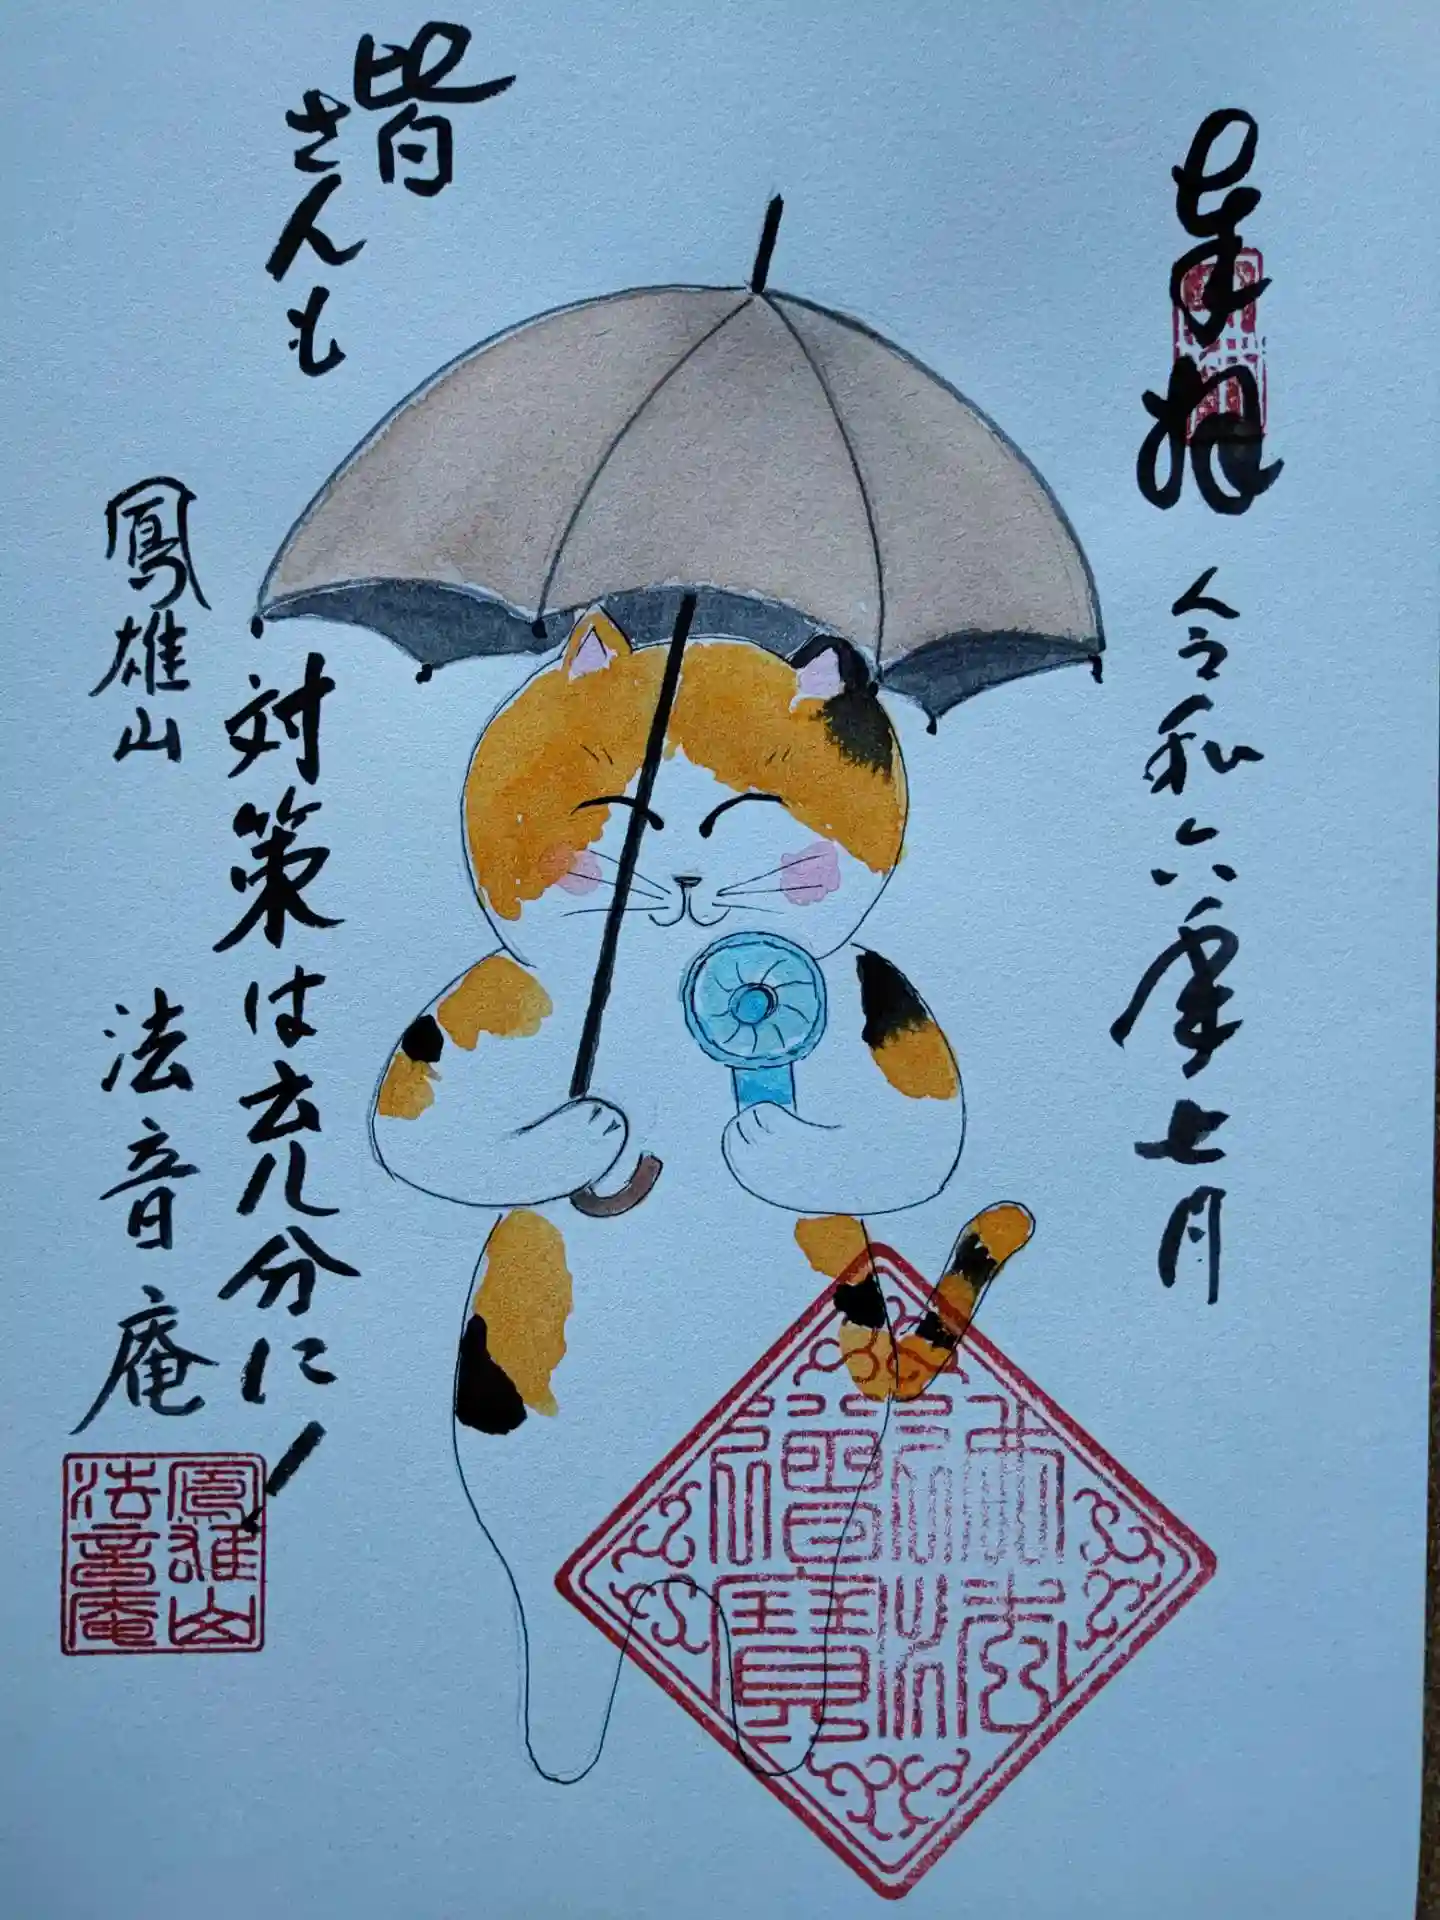 奉拝
令和六年七月
皆さんも
対策は去几分に!
鳳雄山
法音庵
鳳雄山
法音庵
佛法
僧寶